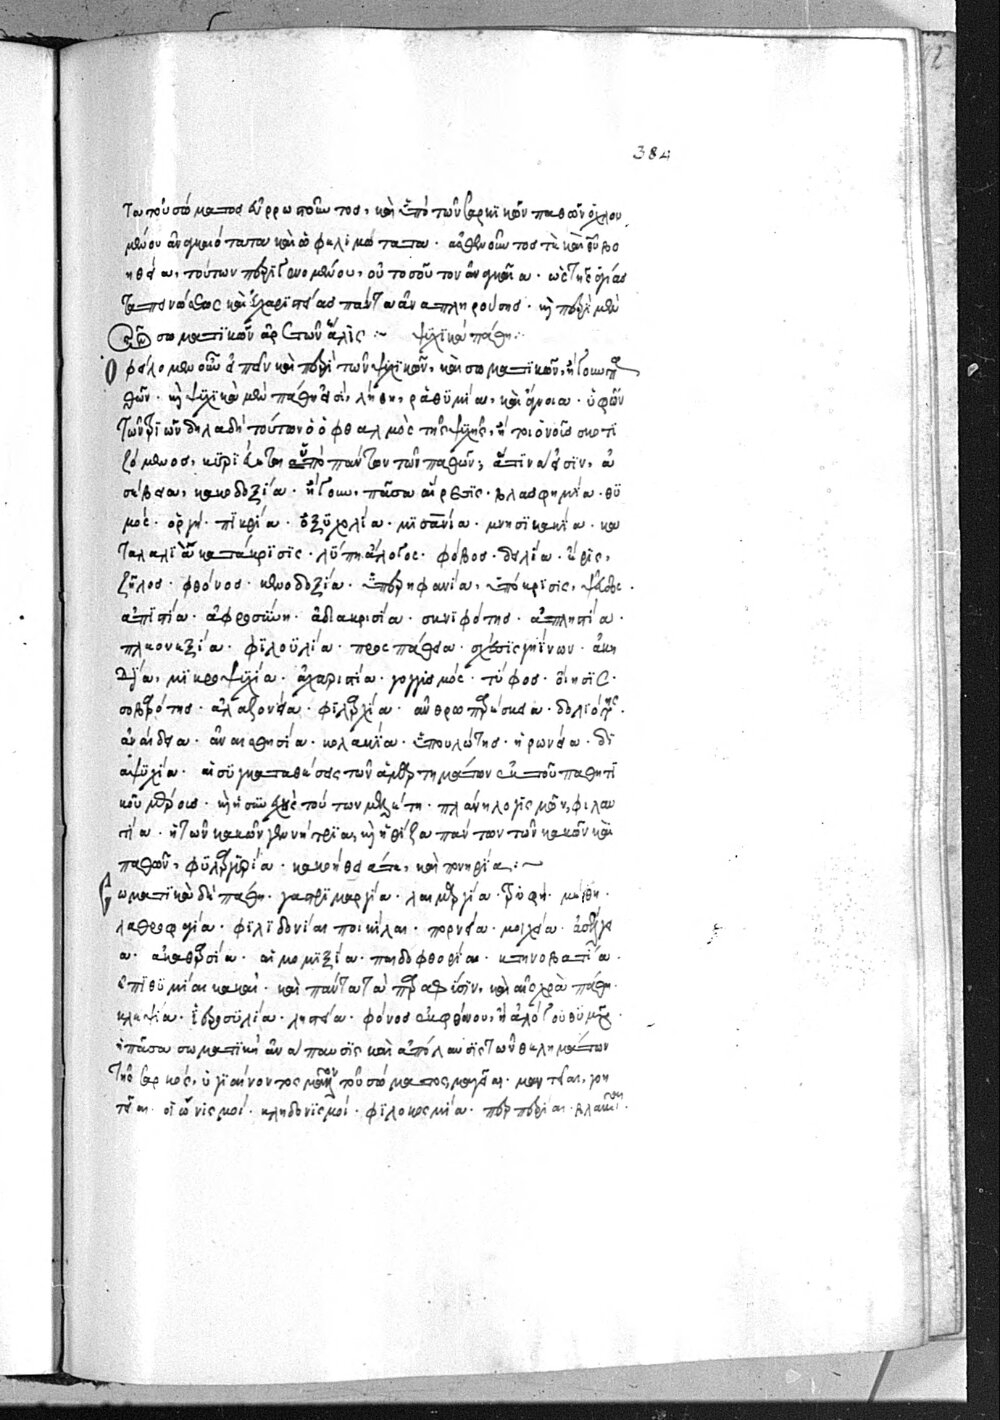 384
τα τοῦ σώματος εὐρρωστοῦντος, καὶ ὑπὸ τῶν σαρκικῶν παθῶν ὀχλου
μένου ἀναγκαιότατα καὶ ὠφελιμώτατα· ἀσθενοῦντος δὲ καὶ
τούτων περιγενομένου, οὐ τοσοῦτον ἀναγκαῖα· ὡς τῆς ἁγίας
ταπεινώσεως καὶ εὐχαριστίας πάντα ἀναπληρούσης· καὶ περὶ μὲν
τῶν σωματικῶν ἀρετῶν ἅλις :~ ψυχικὰ πάθη :·
Ὀφείλομεν οὖν εἰπεῖν καὶ περὶ τῶν ψυχικῶν, καὶ σωματικῶν, ἤγουν πα
θῶν· καὶ ψυχικὰ μὲν πάθη εἰσὶ, λήθη, ῥαθυμία, καὶ ἄγνοια· ὑφ' ὧν
τῶν τριῶν δηλαδὴ τούτων ὁ ὀφθαλμὸς τῆς ψυχῆς, ἤτοι ὁ νοῦς σκοτι
ζόμενος, κυριεύεται ὑπὸ πάντων τῶν παθῶν; ἅτινα εἰσὶν, ἀ
σέβεια, κακοδοξία· ἤγουν, πᾶσα αἵρεσις· βλασφημία· θυ
μός· ὀργή· πικρία· ὀξυχολία· μισανία· μνησικακία· κα
ταλαλιὰ κατάκρισις· λύπη ἄλογος· φόβος· δειλία· ἔρις,
ζῆλος· φθόνος· κενοδοξία· ὑπερηφανία, ὑπόκρισις, ψεῦδος·
ἀπιστία· ἀφροσύνη· ἀδιακρισία· σκνιφότης· ἀπληστία·
πλεονεξία· φιλοϋλία· προσπάθεια· σχέσις γηΐνων· ἀκη
δία, μικροψυχία· ἀχαριστία· γογγισμός· τύφος· οἴησις·
σοβαρότης· ἀλαζονεία· φιλαρχία· ἀνθρωπαρέσκεια· δολιότης·
ἀναίδεια· ἀναισθησία· κολακία· ὑπουλώτης· ἠρωνεία· δι
αψυχία· αἱ συγκαταθέσεις τῶν ἁμαρτημάτων ἐκ τοῦ παθητι
κοῦ μέρους· καὶ ἡ συνεχὲς τούτων μελέτη· πλάνη λογισμῶν, φιλαυ
τία· ἡ τῶν κακῶν γεννήτρια, καὶ ἡ ῥίζα πάντων τῶν κακῶν καὶ
παθῶν, φυλαργυρία· κακοήθεια, καὶ πονηρία :~
Σωματικὰ δὲ πάθη· γαστριμαργία· λαιμαργία· τρυφή· μέθη·
λαθροφαγία· φιλιδονίαι ποικίλαι· πορνεία· μοιχεία· ἀσέλγει
α· ἀκαθαρσία· αἱμομιξία· παιδοφθορία· κτηνοβατία·
ἐπιθυμίαι κακαί· καὶ πάντα τὰ παρὰ φύσιν, καὶ αἰσχρὰ πάθη·
κλεψία· ἱεροσυλία· ληστεία· φόνος
ἡ πᾶσα σωματικὴ ἀνάπαυσις καὶ ἀπόλαυσις τῶν θελημάτων
τῆς σαρκός, ὑγιαίνοντος μᾶλλον τοῦ σώματος, μαγεῖαι· μαντεῖαι, γοη
τεῖαι· οἰωνισμοί· κληδονισμοί· φιλοκοσμία· περπερίαι· βλακεῖαι·